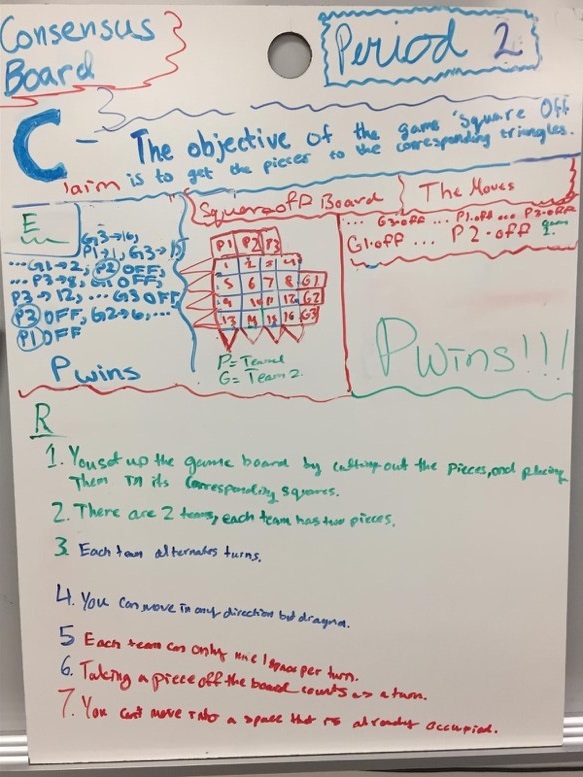 Consensus
Board
Period 2
C - The objective of the game "Square Off
is to get the pieces to the corresponding triangles.
laim
E
G3→16,
P1→1, G3→15
... G1→2, P2 OFF,
... P3→8, G1 OFF,
P3→12, ... G3 OFF
P3 OFF, G2→6, ...
P1 OFF
P wins
Square off Board
P1 P2 P3
1 2 3 4
5 6 7 8 G1
9 10 11 12 G2
13 14 15 16 G3
P= Team 1
G= Team 2
The Moves
... G3-off ... P1.off ... P3-off
G1.off ... P2-off game 2.
P wins!!!
R
1. You set up the game board by cutting out the pieces, and placing
Them in its corresponding squares.
2. There are 2 teams, each team has two pieces.
3. Each team alternates turns.
4. You can move in any direction but
5 Each team can only 1 space per turn.
6. Taking a piece off the board counts as a turn.
7. You can't move into a space that is already occupied.